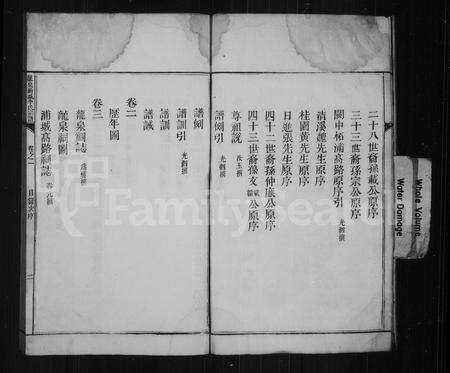 二十八世裔孫載公原序
三十三世裔孫宗公原序
閩中柘浦高路原序引 光銷撰
清溪謝先生原序
桂園黃先生原序
日進張先生原序
四十二世裔孫仲旅公原序
四十三世裔孫文公原序
尊祖說 汝玉撰
譜例引 光銷撰
譜例
譜訓引 光銷撰
譜訓
譜誡
卷二
歷年圖
卷三
龍泉祠誌
龍泉祠圖
浦城高路祠誌
卷之一
目錄次序
二
Whole Volume
Water Damage
FamilySearch